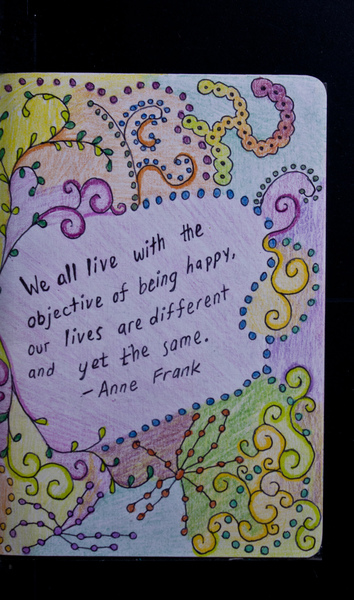 We all live with the
objective of being happy,
our lives are different
and yet the same.
-Anne Frank